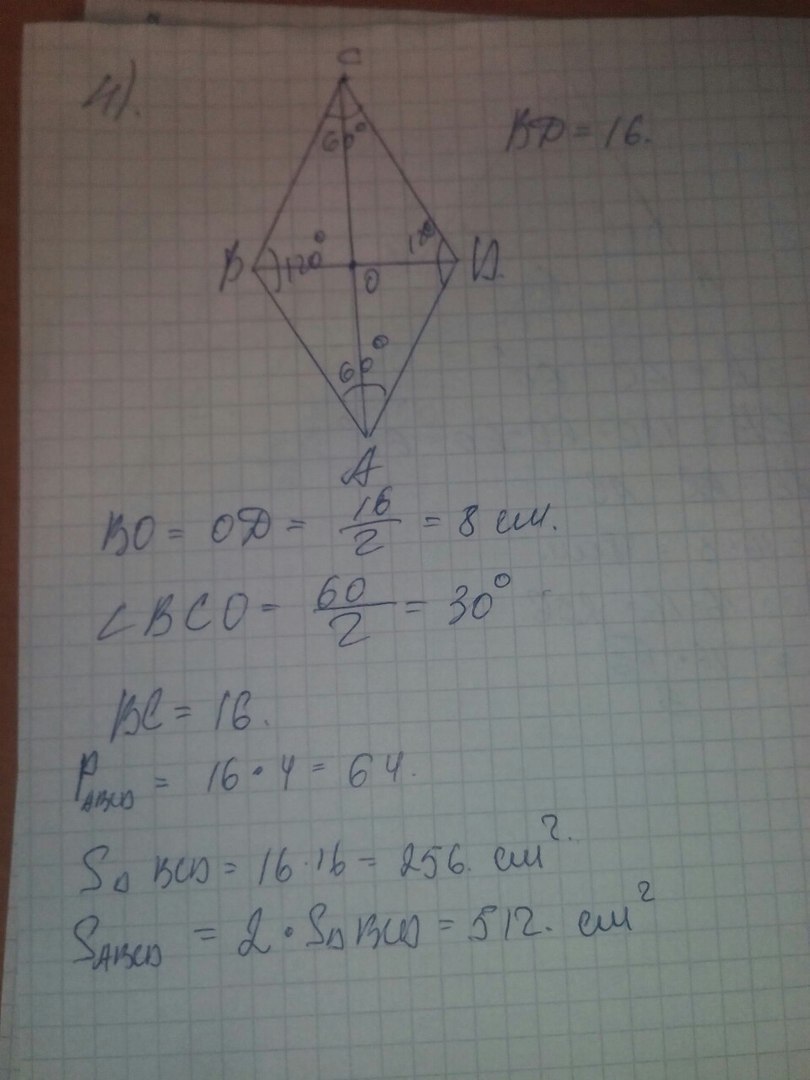 4).
C
60°
BD = 16.
B
120°
O
D.
60°
A
BO = OD = 16/2 = 8 см.
∠BCO = 60/2 = 30°
BC = 16.
P ABCD = 16 · 4 = 64.
S△ BCD = 16 · 16 = 256. см².
S ABCD = 2 · S△ BCD = 512. см²